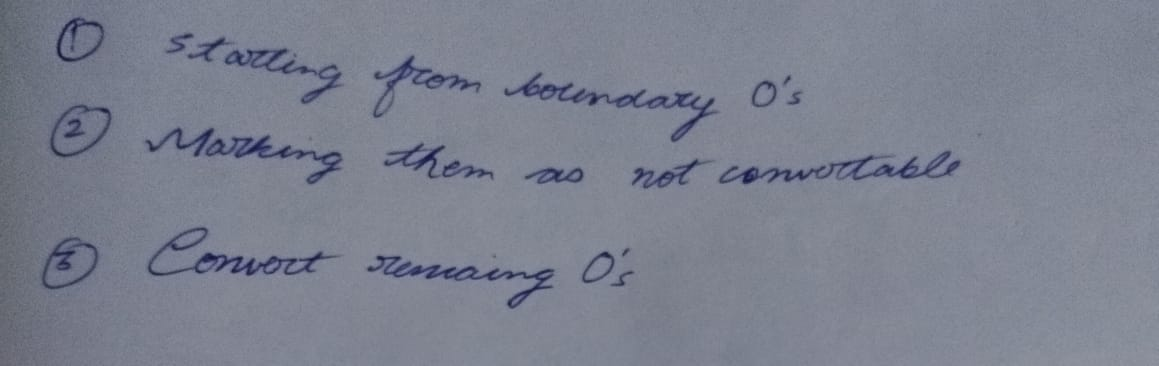 ① Starting from boundary O's
② Marking them as not convertable
③ Convert remaing O's